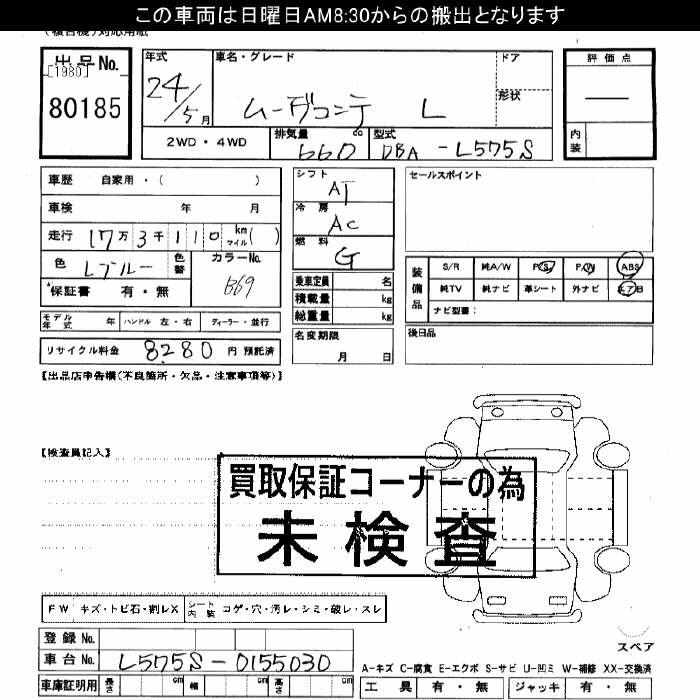 この車両は日曜日AM8:30からの搬出となります
出品No.
[1980]
80185
年式
24/5月
車名・グレード
ムーヴコンテ L
ドア
形状
評価点
内装
2WD・4WD
排気量 cc
660
型式
DBA-L575S
車歴 自家用・( )
車検 年 月
走行 17万3千110 km マイル( )
色 Lブルー 色替
カラーNo. B69
保証書 有・無
モデル年式 年 ハンドル 左・右 ディーラー・並行
リサイクル料金 8280 円 預託済
シフト AT
冷房 AC
燃料 G
乗車定員 名
積載量 kg
総重量 kg
名変期限
月 日
セールスポイント
装備品
S/R 純A/W P/S P/W ABS
純TV 純ナビ 革シート 外ナビ エアB
ナビ型番:
後日品
【出品店申告欄(不良箇所・欠品・注意事項等)】
【検査員記入】
買取保証コーナーの為
未検査
FW キズ・トビ石・割レX シート内装 コゲ・穴・汚レ・シミ・破レ・スレ
スペア
登録No.
車台No. L575S-0155030
車庫証明用 長さ cm 幅 cm 高さ cm
A-キズ C-腐食 E-エクボ S-サビ U-凹ミ W-補修 XX-交換済
工具 有・無 ジャッキ 有・無